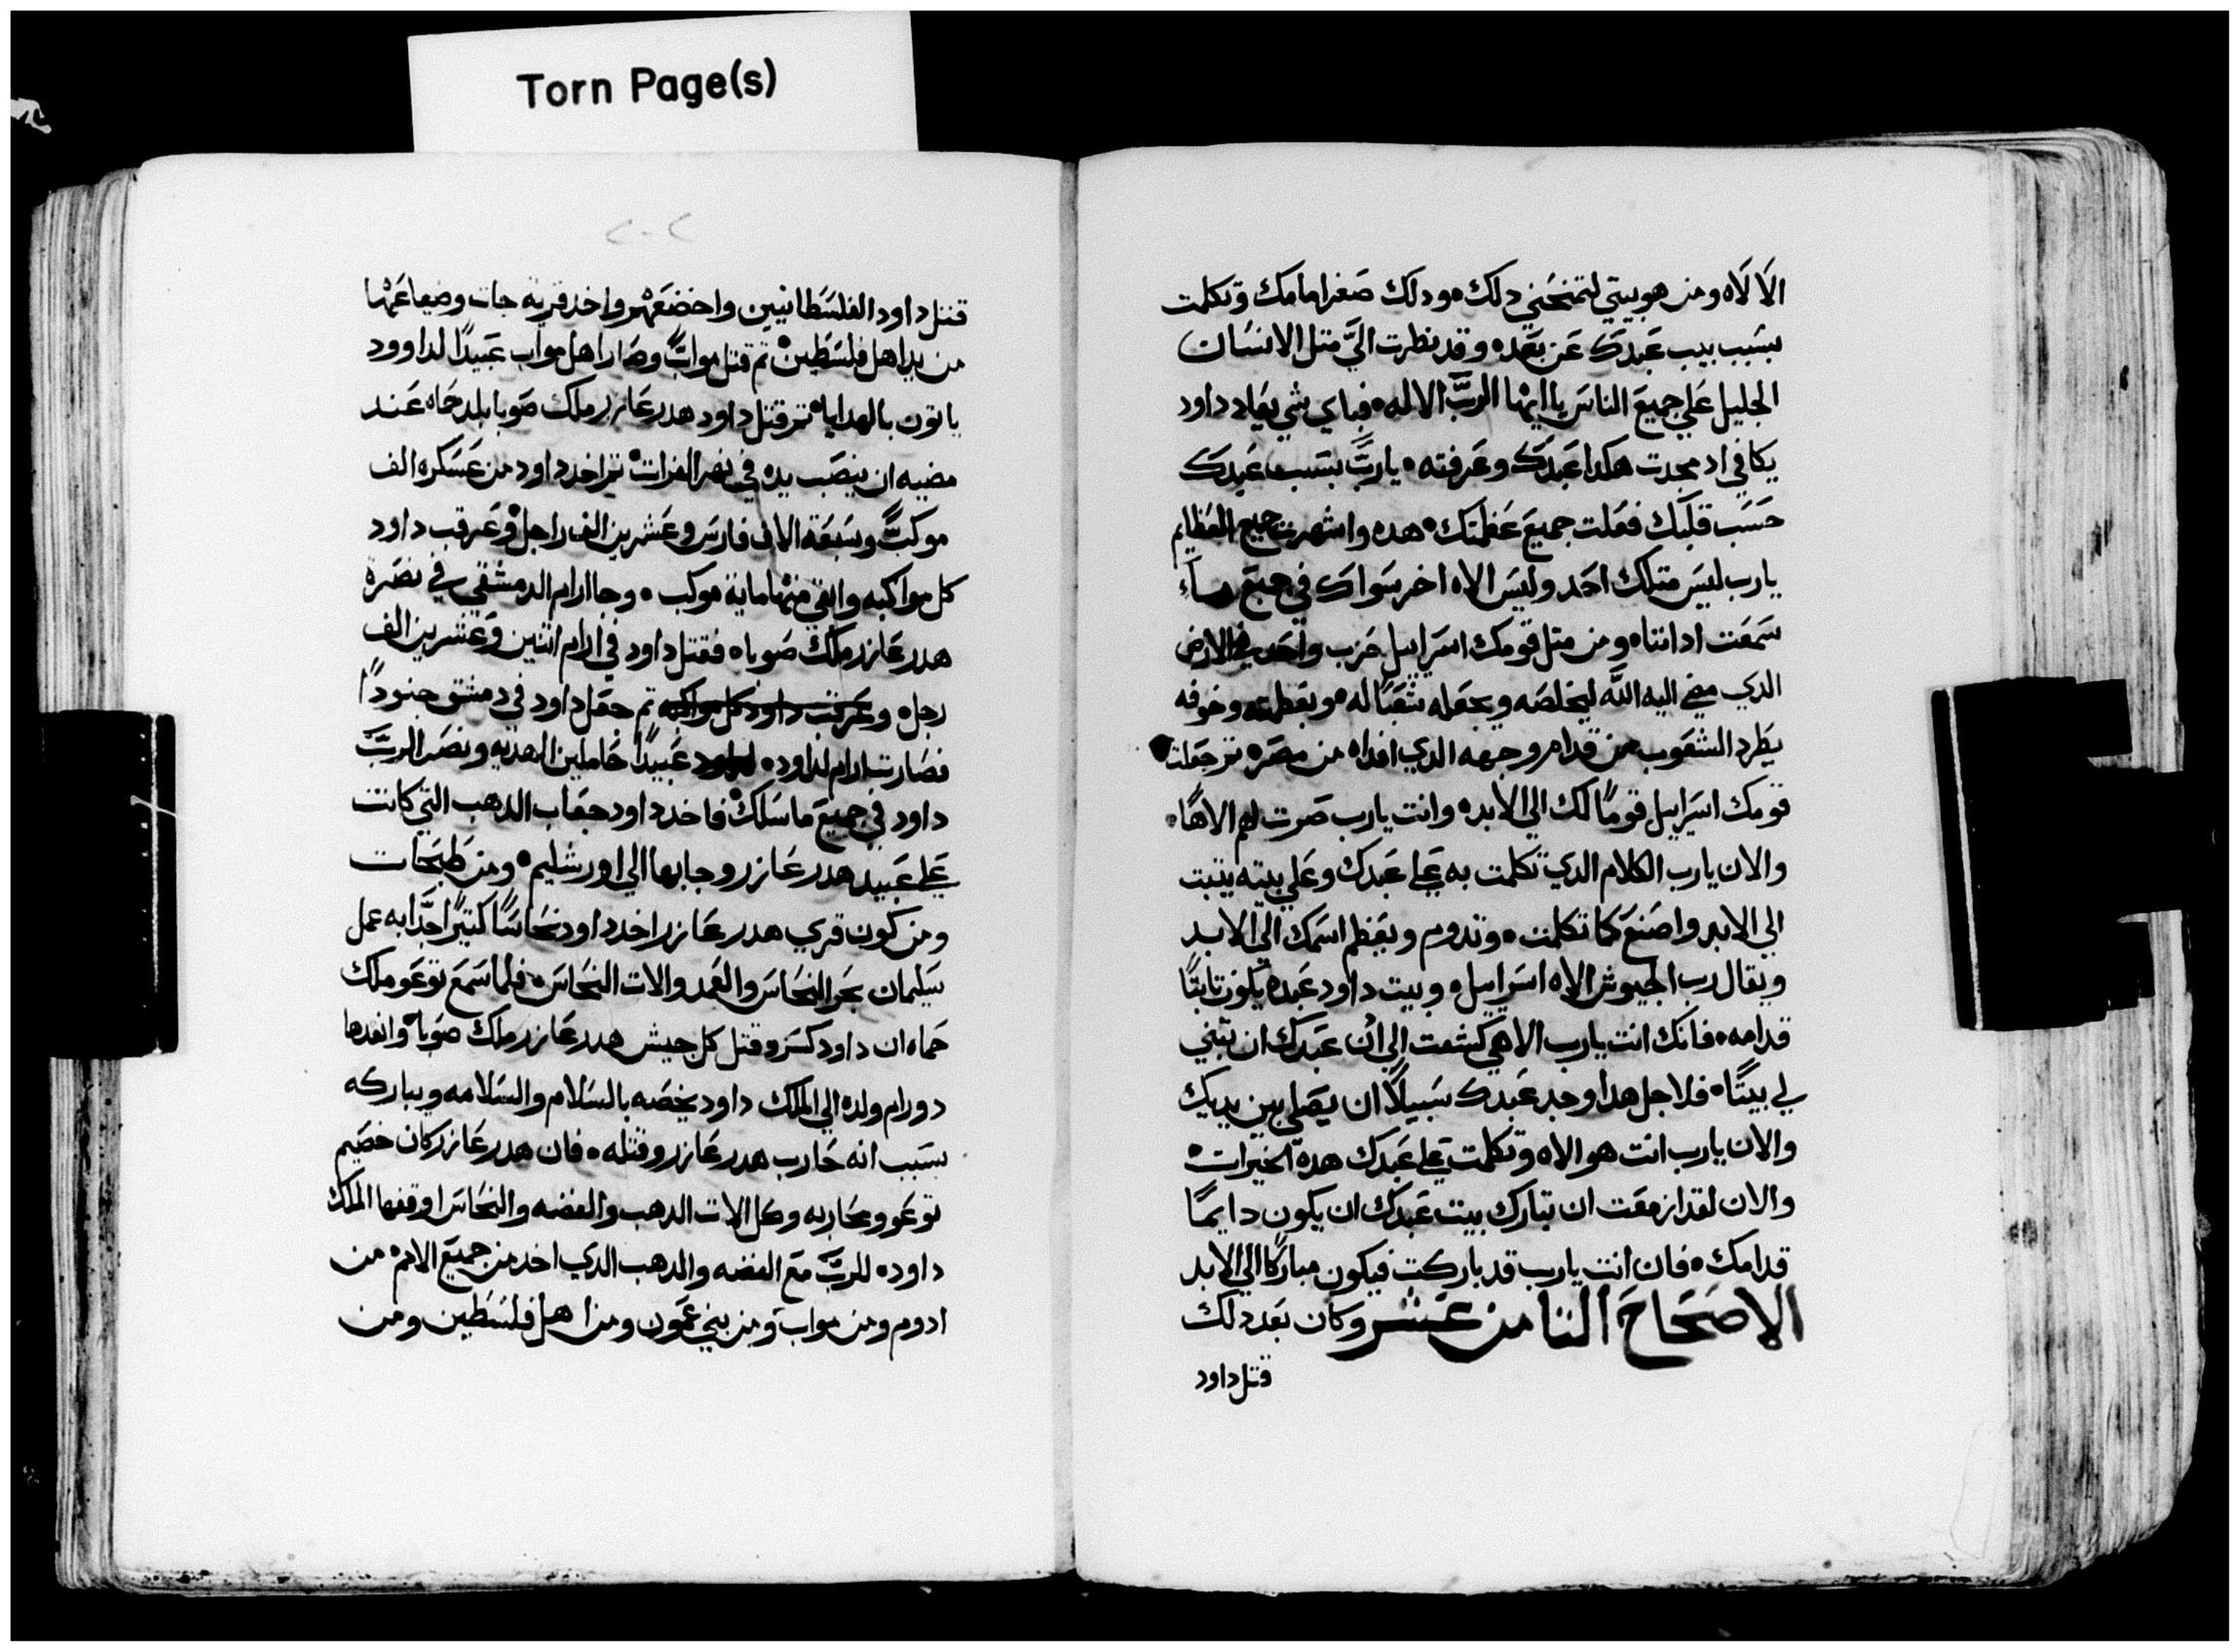 Torn Page(s)
الالاه ومن هو بيتي لتمنحني دلك ودلك صغر امامك وتكلمت
بسبب بيب عبدك عن بعد وقد نظرت الي متل الانسان
الجليل علي جميع الناس يا ايها الرب الاله فباي شي يعاد داود
يكافي اد مجدت هكدا عبدك وعرفته يارب بسبب عبدك
حسب قلبك فعلت جميع عظمتك هده واشهرت جميع العظايم
يارب ليس متلك احد وليس الاه اخر سواك في جميع ما
سمعت اداننا ومن متل قومك اسراييل حزب واحد في الارض
الدي مضي اليه الله ليخلصه ويجعله شعبا له وبعظمته وخوفه
يطرد الشعوب من قدام وجهه الدي افداه من مصر تم جعلت
قومك اسراييل قوما لك الي الابد وانت يارب صرت لهم الاها
والان يارب الكلام الدي تكلمت به علي عبدك وعلي بيته يتبت
الي الابد واصنع كما تكلمت وتدوم ويعظم اسمك الي الابد
ويقال رب الجيوش الاه اسراييل وبيت داود عبده يكون تابتا
قدامه فانك انت يارب الاهي كشفت الي ادن عبدك ان تبني
لي بيتا فلاجل هدا وجد عبدك سبيلا ان يصلي بين يديك
والان يارب انت هو الاه وتكلمت علي عبدك هده الخيرات
والان لقد ازمعت ان تبارك بيت عبدك ان يكون دايما
قدامك فان انت يارب قد باركت فيكون مباركا الي الابد
الاصحاح التامن عشر وكان بعد دلك
قتل داود
٢٠٢
قتل داود الفلسطانيين واخضعهم واخد قرية جات وضياعها
من يد اهل فلسطين تم قتل مواب وصار اهل مواب عبيدا لداوود
ياتون بالهدايا تم قتل داود هدرعازر ملك صوبا بلد حماه عند
مضيه ان ينصب يده في نهر الفرات تم اخد داود من عسكره الف
موكب وسبعة الاف فارس وعشرين الف راجل وعرقب داود
كل مواكبه وابقي منها ماية موكب وجا ارام الدمشقي في نصرة
هدرعازر ملك صوباه فقتل داود في ارام اتنين وعشرين الف
رجل وعرقب داود كل مواكبه تم جعل داود في دمشق جنودا
فصارت ارام لداود لداود عبيدا حاملين الهديه ونصر الرب
داود في جميع ما سلك فاخد داود جعاب الدهب التي كانت
علي عبيد هدرعازر وجابها الي اورشليم ومن طبحات
ومن كون قري هدرعازر اخد داود نحاسا كتيرا جدا به عمل
سليمان بحر النحاس والعمد والات النحاس فلما سمع توعو ملك
حماه ان داود كسر وقتل كل جيش هدرعازر ملك صوبا وانفدها
دورام ولده الي الملك داود يخصه بالسلام والسلامه ويباركه
بسبب انه حارب هدرعازر وقتله فان هدرعازر كان خصيم
توعو ومحاربه وكل الات الدهب والفضه والنحاس اوقفها الملك
داود للرب مع الفضه والدهب الدي اخد من جميع الامم من
ادوم ومن مواب ومن بني عمون ومن اهل فلسطين ومن